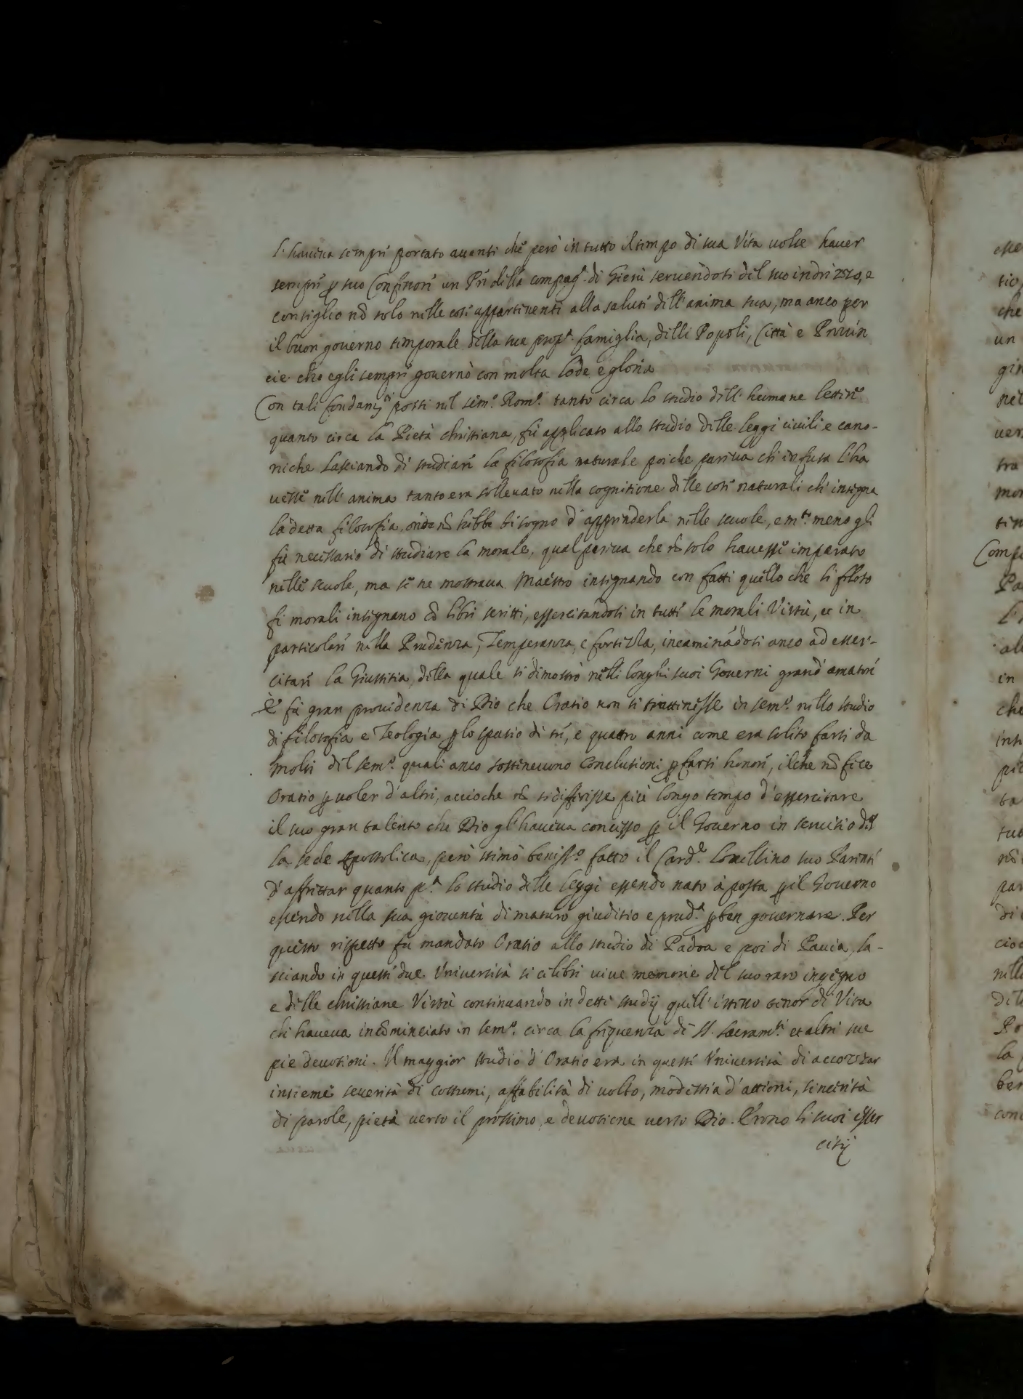 l'haueua sempre portato auanti che però in tutto il tempo di sua Vita uolse hauer
sempre ꝑ suo Confessore un Pre della compag.ª di Giesù seruendosi del suo indrizzo, e
consiglio nō solo nelle cose appartinenti alla salute dell'anima sua, ma anco per
il buon gouerno temporale della sua prop.ª famiglia, delli Popoli, Città e Prouin
cie che egli sempre gouernò con molta lode e gloria
Con tali fondam.ti posti nel sem.º Rom.º tanto circa lo studio dell'humane lettere
quanto circa la Pietà christiana, fù applicato allo studio delle leggi ciuili e cano-
niche lasciando di studiare la filosofia naturale poiche pareua ch'infusa l'ha
uesse nell'anima tanto era solleuato nella cognitione delle cose naturali ch'insegna
la detta filosofia, onde nō hebbe bisogno d'apprenderla nelle scuole, e m.to meno gli
fù necessario di studiare la morale, qual pareua che nō solo hauesse imparato
nelle scuole, ma se ne mostraua Maestro insegnando con fatti quello che li filoso
fi morali insegnano cō libri scritti, essercitandosi in tutte le morali Virtù, et in
particolare nella Prudenza, Temperanza, e fortezza, incaminādosi anco ad esser-
citare la Giustitia, della quale si dimostrò nelli longhi suoi Gouerni grand'amatore
E fù gran prouidenza di Dio che Oratio non si trattenesse in sem.º nello studio
di filosofia e Teologia ꝑ lo spatio di tre, e quattro anni come era solito farsi da
molti del sem.º quali anco sosteneuano Conclusioni ꝑ farsi honore, ilche nō fece
Oratio ꝑ uoler d'altri, accioche nō si differisse più longo tempo d'essercitare
il suo gran talento che Dio gl'haueua concesso ꝑ il Gouerno in seruitio del
la sede Apostolica, però stimò beniss.º fatto il Card.le Lomellino suo Parente
d'affrettar quanto p.ª lo studio delle leggi essendo nato à posta ꝑ il Gouerno
essendo nella sua giouentù di maturo giuditio e prud.ª ꝑ ben gouernare. Per
questo rispetto fù mandato Oratio allo studio di Padoa e poi di Pauia, la-
sciando in queste due Vniuersità si celibri uiue memorie del suo raro ingegno
e delle christiane Virtù continuando in detti studij quell'istesso tenor di Vita
che haueua incōminciato in sem.º circa la frequenza di SS. sacram.ti et altre sue
pie deuotioni. Il maggior studio d'Oratio era in queste Vniuersità di accordar
insieme seuerità di costumi, affabilità di uolto, modestia d'attioni, sincerità
di parole, pietà uerso il prossimo, e deuotione uerso Dio. Erano li suoi esser
citij